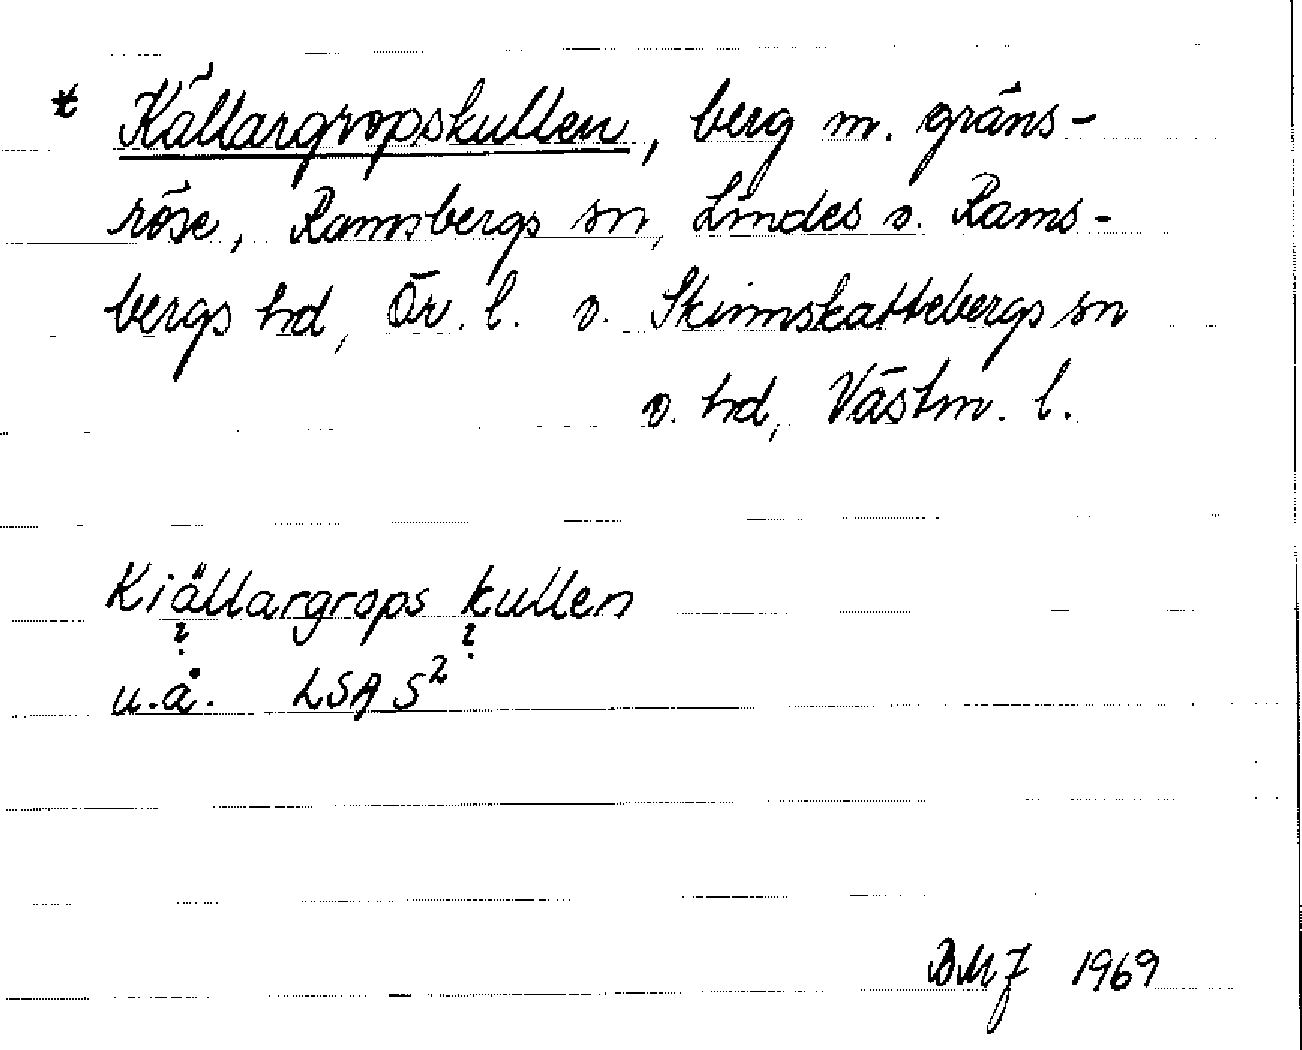 * Källargropskullen, berg m. gräns-
röse, Ramsbergs sn, Lindes o. Rams-
bergs hd, Ör. l. o. Skinnskattebergs sn
o. hd, Västm. l.
Kiällargrops kullen
? ?
u.å. LSA S²
BMJ 1969